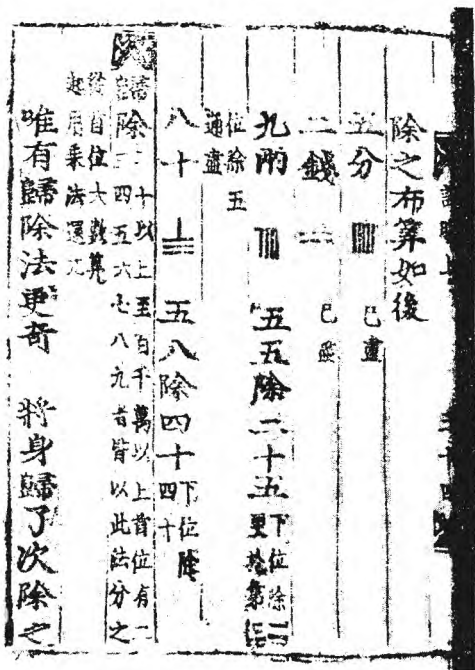 除之布筭如後
五分 已盡
二錢 已盡
九兩 五五除二十五 下位除二
更於第三
位除五
通盡
八十 五八除四十 下位除
四十
歸除 二十以上至百千萬以上首位有一
二三四五六七八九者皆以此法分之
從首位大數筭
起用乘法還元
唯有歸除法更奇 將身歸了次除之